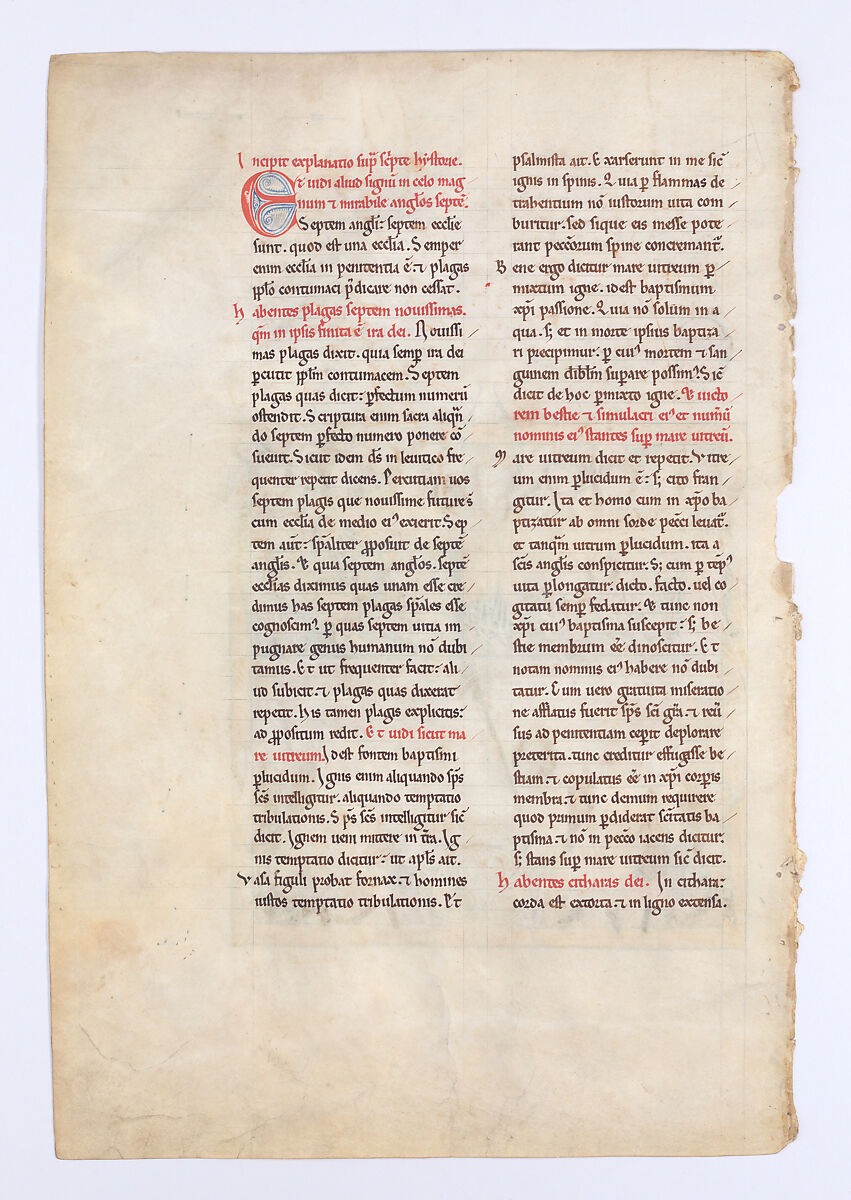 Incipit explanatio sup̄ sc̄pte hystorie.
Et uidi aliud signū in celo mag
num ⁊ mirabile anglōs septē.
Septem angli: septem ecclie
sunt. quod est una ecclia. Semper
enim ecclia in penitentia ē. ⁊ plagas
ppl̄o contumaci p̄dicare non cessat.
Habentes plagas septem nouissimas.
qm̄ in ipsis finita ē ira dei. Nouissi
mas plagas dixit. quia semp̄ ira dei
ꝑcutit ppl̄m contumacem. Septem
plagas quas dicit: ꝑfectum numerū
ostendit. Scriptura enim sacra aliqn̄
do septem ꝑfecto numero ponere cō
sueuit. Sicut idem ds̄ in leuitico fre
quenter repetit dicens. Percutiam uos
septem plagis que nouissime future s̄
cum ecclia de medio eiꝰ exierit. Sep
tem aut̄: sp̄aliter ꝓposuit de septē
anglis. Et quia septem anglōs. septē
ecclias diximus quas unam esse cre
dimus has septem plagas sp̄ales esse
cognoscimꝰ ꝑ quas septem uitia im
pugnare genus humanum nō dubi
tamus. Et ut frequenter facit: ali
ud subicit. ⁊ plagas quas dixerat
repetit. His tamen plagis explicitis:
ad ꝓpositum redit. Et uidi sicut ma
re uitreum. Id est fontem baptismi
ꝑlucidum. Ignis enim aliquando sp̄s
sc̄s intelligitur. aliquando temptatio
tribulationis. Sp̄s sc̄s intelligitur sic̄
dicit. Ignem ueni mittere in tr̄a. Ig
nis temptatio dicitur: ut apl̄s ait.
Vasa figuli probat fornax. ⁊ homines
iustos temptatio tribulationis. Et
psalmista ait. Exarserunt in me sic̄
ignis in spinis. Quia ꝑ flammas de
trahentium nō iustorum uita com
buritur. sed sique eis messe pote
rant peccōrum spine concremant̄.
Bene ergo dicitur mare uitreum ꝑ
mixtum igne. id est baptismum
xp̄i passione. Quia nō solum in a
qua. s; et in morte ipsius baptiza
ri precipimur. ꝑ cuiꝰ mortem ⁊ san
guinem dib̄lm suꝑare possimꝰ. Sic̄
dicit de hoc ꝑmixto igne. Et uicto
rem bestie ⁊ simulacri eiꝰ et num̄ū
nominis eiꝰ stantes sup̄ mare uitreū.
Mare uitreum dicit et repetit. Vitre
um enim ꝑlucidum ē: s; cito fran
gitur. Ita et homo cum in xp̄o ba
ptizatur ab omni sorde pecci leuat̄.
et tanqm̄ uitrum ꝑlucidum. ita a
sc̄is anglis conspicitur. S; cum ꝑ temp̄ꝰ
uita ꝑlongatur. dicto. facto. uel co
gitatu semp̄ fedatur. Et tunc non
xp̄i cuiꝰ baptisma suscepit: s; be
stie membrum eē dinoscitur. Et
notam nominis eiꝰ habere nō dubi
tatur. Cum uero gratuita miseratio
ne afflatus fuerit sp̄s sc̄i gr̄a. ⁊ reū
sus ad penitentiam ceperit deplorare
preterita. tunc creditur effugisse be
stiam. ⁊ copulatus eē in xp̄i corꝑis
membra. ⁊ tunc demum requirere
quod primum ꝑdiderat sc̄itatis ba
ptisma. ⁊ nō in pecco iacens dicitur.
s; stans sup̄ mare uitreum sic̄ dicit.
Habentes citharas dei. In cithara:
corda est extorta. ⁊ in ligno extensa.